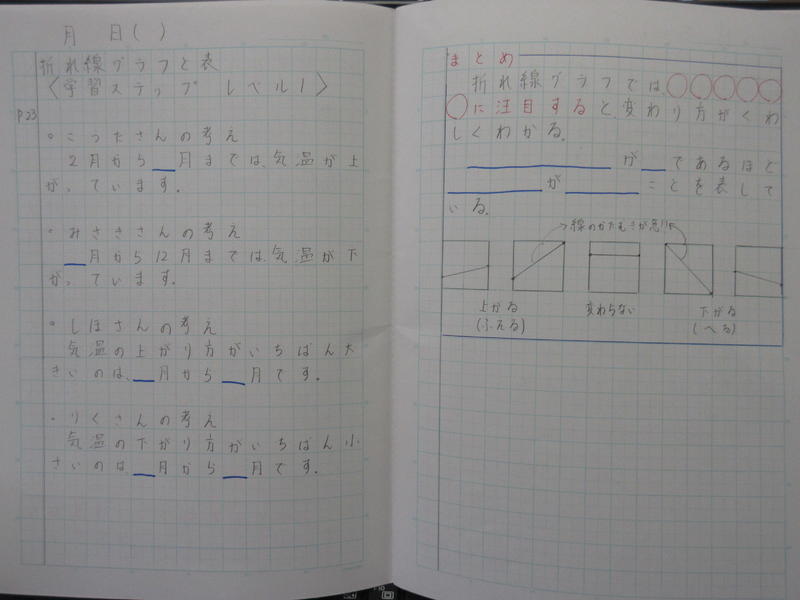 月 日( )
折れ線グラフと表
〈学習ステップ レベル1〉
P.23
・こうたさんの考え
2月から__月までは、気温が上
がっています。
・みさきさんの考え
__月から12月までは、気温が下
がっています。
・しほさんの考え
気温の上がり方がいちばん大
きいのは、__月から__月です。
・りくさんの考え
気温の下がり方がいちばん小
さいのは、__月から__月です。
まとめ
折れ線グラフでは、○○○○○
○に注目すると変わり方がくわ
しくわかる。
______が__であるほど
______が______ことを表して
いる。
線のかたむきが急
上がる
(ふえる)
変わらない
下がる
(へる)